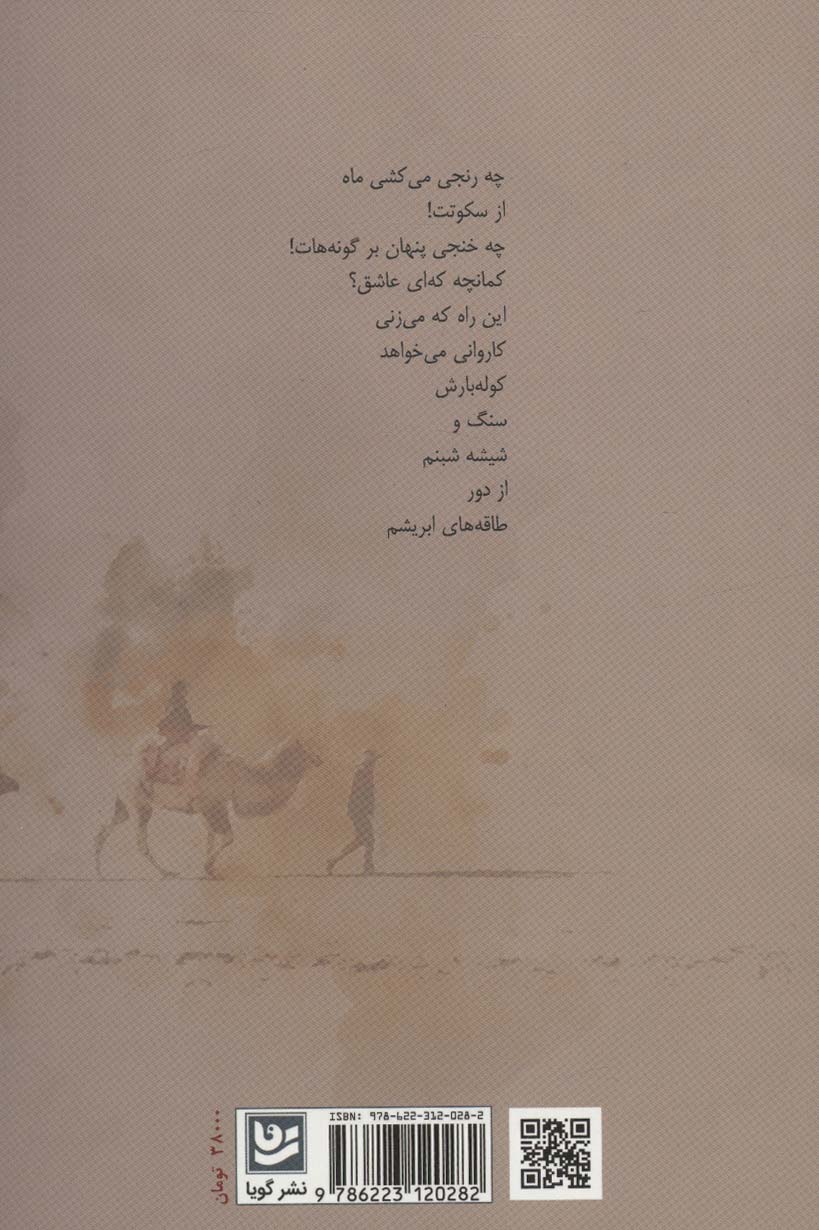 چه رنجی می‌کشی ماه
از سکوتت!
چه خنجی پنهان بر گونه‌هات!
کمانچه که‌ای عاشق؟
این راه که می‌زنی
کاروانی می‌خواهد
کوله‌بارش
سنگ و
شیشه شبنم
از دور
طاقه‌های ابریشم
۳۸۰۰۰ تومان
نشر گویا
ISBN: 978-622-312-028-2
9 786223 120282